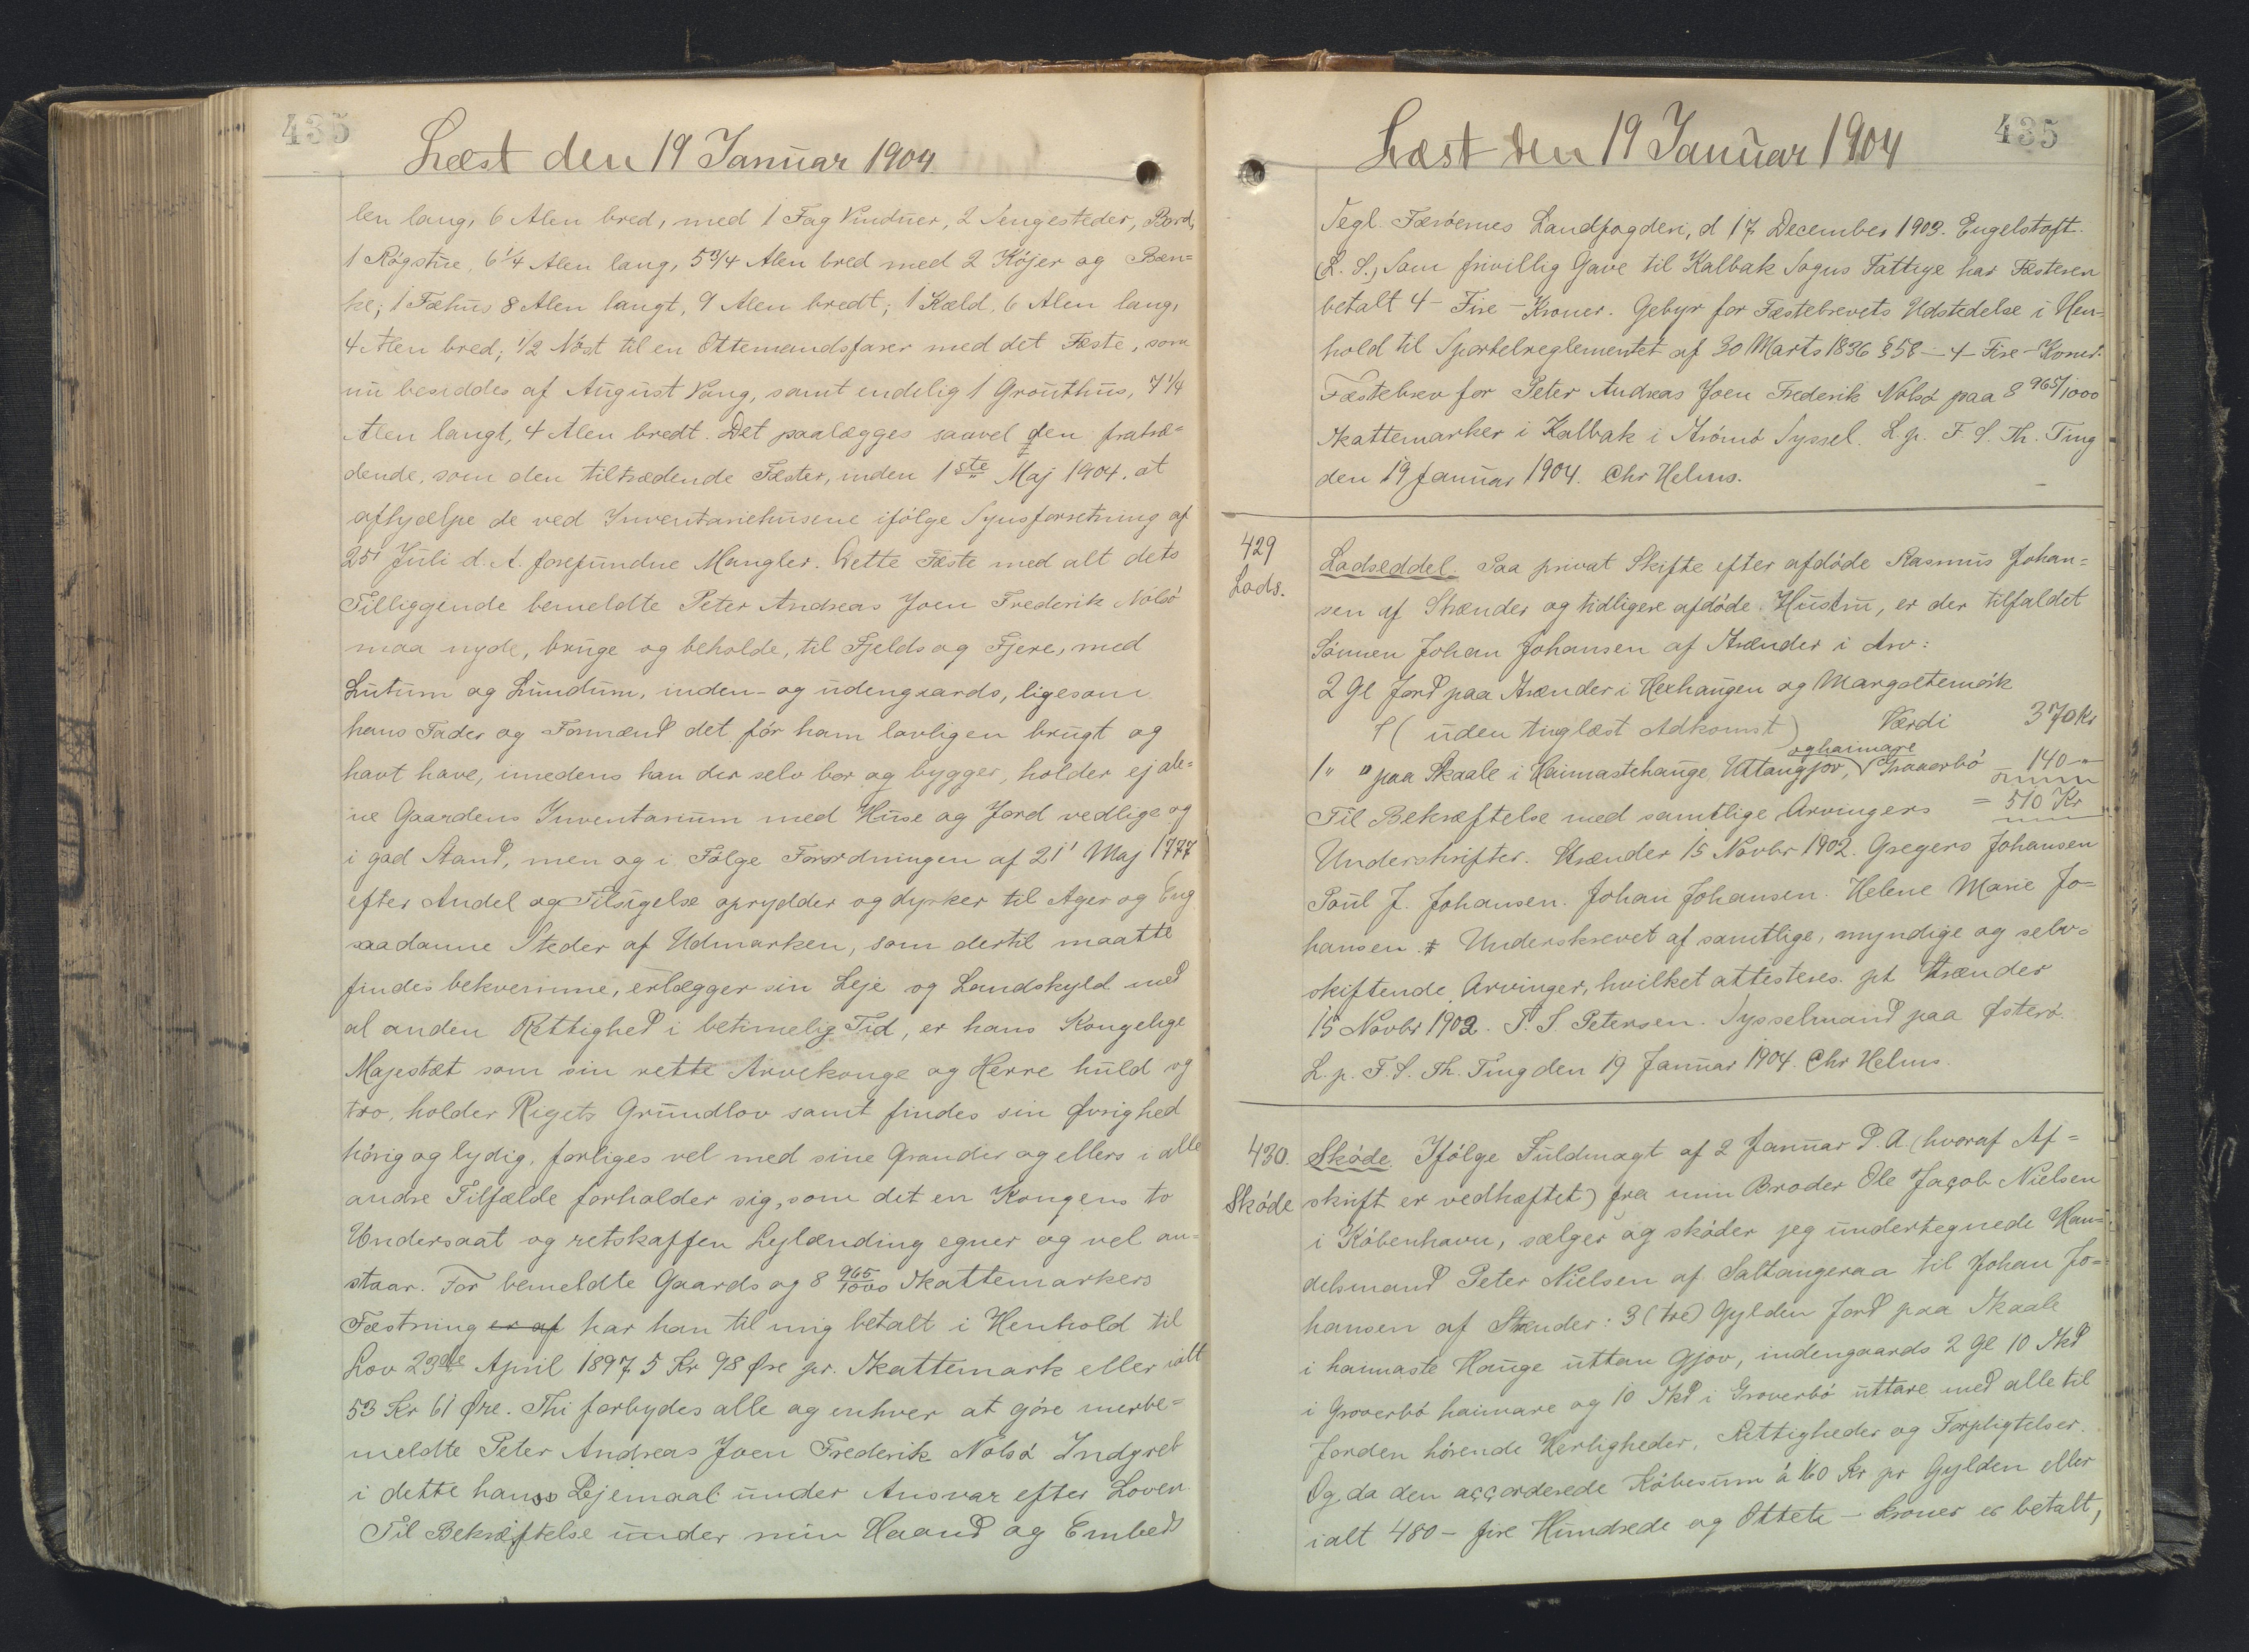 435
Læst den 19 Januar 1904
len lang, 6 Alen bred, med 1 Fag Vinduer, 2 Sengesteder, Bord,
1 Røgstue, 6 1/4 Alen lang, 5 3/4 Alen bred med 2 Køjer og Bæn=
ke; 1 Fæhus 8 Alen langt, 9 Alen bredt; 1 Kæld, 6 Alen lang,
4 Alen bred; 1/2 Nøst til en Ottemandsfarer med det Fæste, som
nu besiddes af August Vang, samt endelig 1 Grouthus, 7 1/4
Alen langt, 4 Alen bredt. Det paalægges saavel den fratræ=
dende, som den tiltrædende Fæster, inden 1ste Maj 1904, at
afhjælpe de ved Inventariehusene ifølge Synsforretning af
25' Juli d. A. forefundne Mangler. Dette Fæste med alt dets
Tilliggende bemeldte Peter Andreas Joen Frederik Nolsø
maa nyde, bruge og beholde, til Fjelds og Fjere, med
Lutum og Lundum, inden- og udengaards, ligesom
hans Fader og Formænd det før ham lovligen brugt og
havt have, imedens han der selv bor og bygger, holder ej ale=
ne Gaardens Inventarium med Huse og Jord vedlige og
i god Stand, men og i Følge Forordningen af 21' Maj 1777
efter Andel og Tilsigelse oprydder og dyrker til Ager og Eng
saadanne Steder af Udmarken, som dertil maatte
findes bekvemme, erlægger sin Leje og Landskyld med
al anden Rettighed i betimelig Tid, er hans Kongelige
Majestæt som sin rette Arvekonge og Herre huld og
tro, holder Rigets Grundlov samt findes sin Øvrighed
hørig og lydig, forliges vel med sine Grander og ellers i alle
andre Tilfælde forholder sig, som det en Kongens to
Undersaat og retskaffen Lejlænding egner og vel an=
staar. For bemeldte Gaards og 8 965/1000 Skattemarkers
Fæstning er af har han til mig betalt i Henhold til
Lov 23de April 1897 5 Kr 98 Øre pr. Skattemark eller ialt
53 Kr 61 Øre. Thi forbydes alle og enhver at gøre merbe=
meldte Peter Andreas Joen Frederik Nolsø Indgreb
i dette hans Lejemaal under Ansvar efter Loven.
Til Bekræftelse under min Haand og Embeds
435
Læst den 19 Januar 1904
Segl. Færøernes Landfogderi, d 17 December 1903. Engelstoft.
(L. S.) Som frivillig Gave til Kalbak Sogns Fattige har Fæsteren
betalt 4 - Fire - Kroner. Gebyr for Fæstebrevets Udstedelse i Hen=
hold til Sportelreglementet af 30 Marts 1836 § 58 - 4 - Fire - Kroner.
Fæstebrev for Peter Andreas Joen Frederik Nolsø paa 8 965/1000
Skattemarker i Kalbak i Strømø Syssel. L. p. F. S. Th. Ting
den 19 Januar 1904. Chr Helms.
429
Lods.
Lodseddel. Paa privat Skifte efter afdøde Rasmus Johan=
sen af Strænder og tidligere afdøde Hustru, er der tilfaldet
Sønnen Johan Johansen af Strænder i Arv:
2 Gl Jord paa Strænder i Hexhaugen og Margretemörk
(uden tinglæst Adkomst) Værdi 370 Kr
og haimare
1 " " paa Skaale i Haimastehauge, Uttangjov, Groverbø 140 "
Til Bekræftelse med samtlige Arvingers = 510 Kr
Underskrifter. Strænder 15 Novbr 1902. Gregers Johansen
Poul J. Johansen. Johan Johansen. Helene Marie Jo=
hansen. Underskrevet af samtlige, myndige og selv=
skiftende Arvinger, hvilket attesteres. pt Strænder
15 Novbr 1902. P. S. Petersen. Sysselmand paa Østerø.
L. p. F. S. Th. Ting den 19 Januar 1904. Chr Helms.
430.
Skøde
Skøde. Ifølge Fuldmagt af 2 Januar D. A. (hvoraf Af=
skrift er vedhæftet) fra min Broder Ole Jacob Nielsen
i København, sælger og skøder jeg undertegnede Han=
delsmand Peter Nielsen af Saltangeraa til Johan Jo=
hansen af Strender: 3 (tre) Gylden Jord paa Skaale
i haimaste Hauge uttan Gjov, indengaards 2 Gl 10 Skd
i Groverbø haimare og 10 Skd i Groverbø uttare med alle til
Jorden hørende Herligheder, Rettigheder og Forpligtelser.
Og da den accorderede Købesum à 160 Kr pr Gylden eller
ialt 480 - fire Hundrede og Otteti - Kroner er betalt,